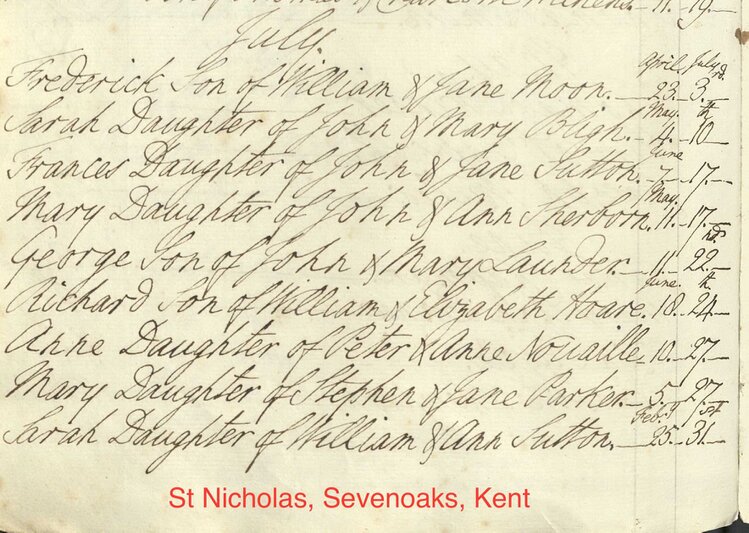 11. 19.
July.
April. July
Frederick Son of William & Jane Moon. 23. 3rd.
May. th
Sarah Daughter of John & Mary Bligh. 4. 10
June
Frances Daughter of John & Jane Sutton. 7. 17.
May.
Mary Daughter of John & Ann Sherborn. 11. 17.
nd.
George Son of John & Mary Launder. 11. 22.
June. th
Richard Son of William & Elizabeth Hoare. 18. 24.
Anne Daughter of Peter & Anne Nouaille 10. 27.
Mary Daughter of Stephen & Jane Parker. 5. 27.
Feb.y st
Sarah Daughter of William & Ann Sutton. 25. 31.
St Nicholas, Sevenoaks, Kent